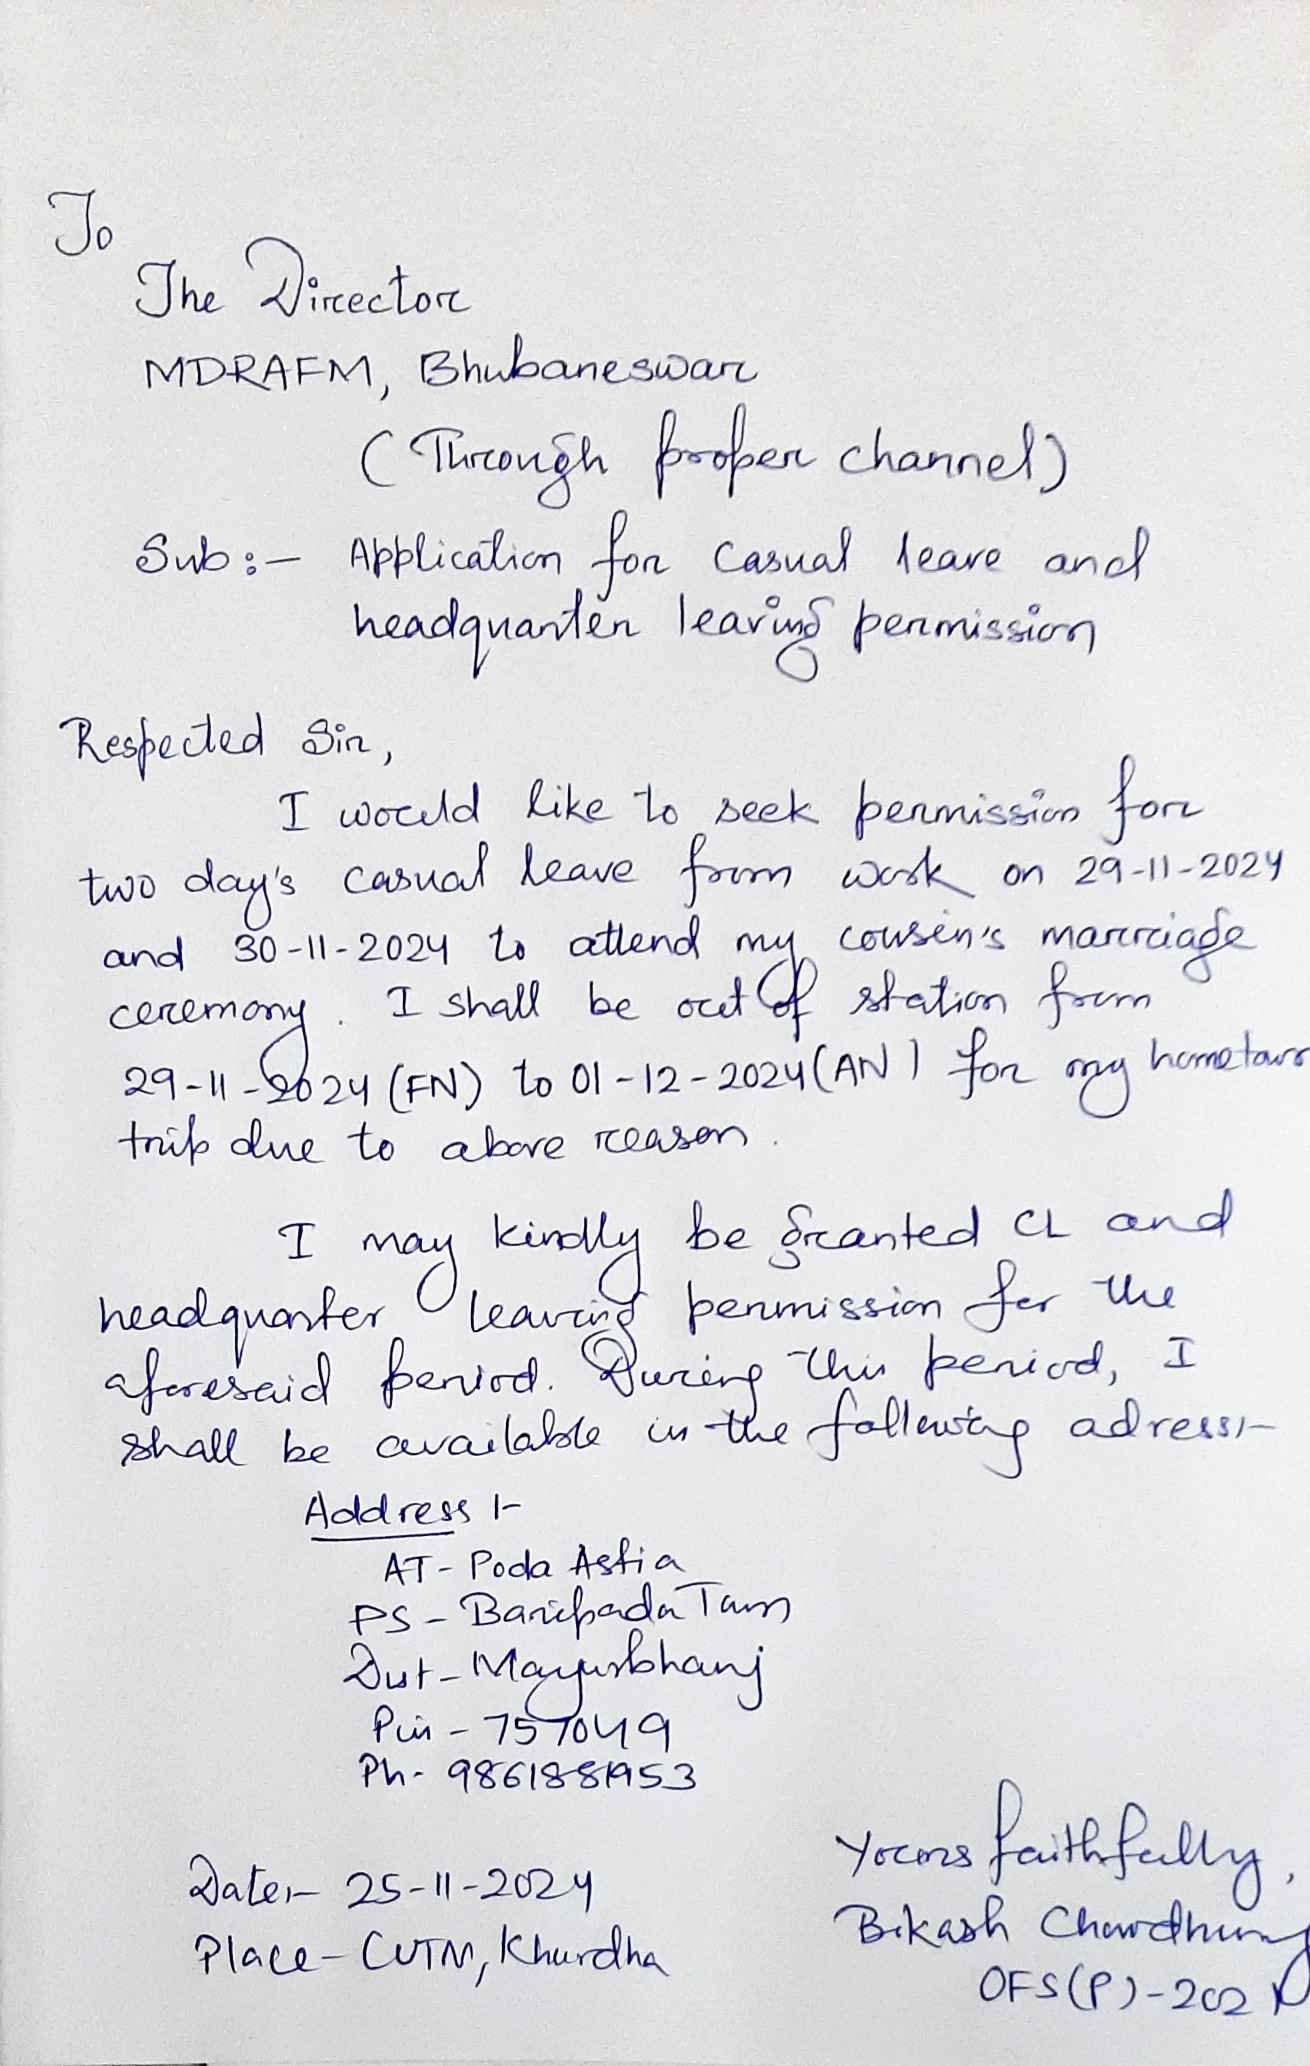 To
The Director
MDRAFM, Bhubaneswar
(Through proper channel)
Sub:- Application for casual leave and
headquarter leaving permission
Respected Sir,
I would like to seek permission for
two day's casual leave from work on 29-11-2024
and 30-11-2024 to attend my cousin's marriage
ceremony. I shall be out of station from
29-11-2024 (FN) to 01-12-2024 (AN) for my hometown
trip due to above reason.
I may kindly be granted CL and
headquarter leaving permission for the
aforesaid period. During this period, I
shall be available in the following adress:-
Address :-
AT- Poda Astia
PS - Baripada Town
Dist- Mayurbhanj
Pin - 757049
Ph-
Date:- 25-11-2024
Place- CUTM, Khurdha
Yours faithfully,
Bikash Chowdhury
OFS(P)-202